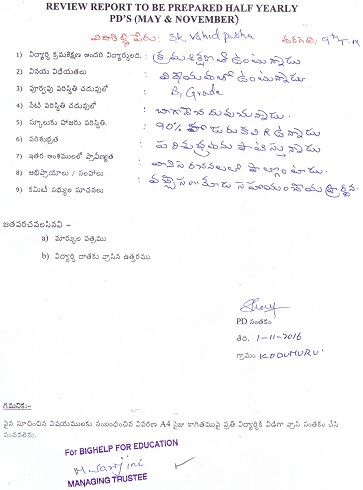 REVIEW REPORT TO BE PREPARED HALF YEARLY
PD'S (MAY & NOVEMBER)
విద్యార్థి పేరు: SK. Vahid pasha తరగతి: 9th T.M
1) విద్యార్థి క్రమశిక్షణ అందరి విద్యార్థులది. : క్రమశిక్షణతో ఉంటున్నాడు
2) వినయ విధేయతలు : ఉంటున్నాడు
3) పూర్వపు పరిస్థితి చదువులో : B1 Grade
4) నేటి పరిస్థితి చదువులో : బాగా చదువుచున్నాడు
5) స్కూలుకు హాజరు పరిస్థితి. : 90%
6) పరిశుభ్రత : పరిశుభ్రతను పాటిస్తున్నాడు
7) ఇతర అంశములలో ప్రావీణ్యత :
8) అభిప్రాయాలు / సలహాలు :
9) కమిటీ సభ్యుల సూచనలు
జతపరచవలసినవి -
a) మార్కుల పత్రము
b) విద్యార్థి దాతకు వ్రాసిన ఉత్తరము
PD సంతకం
తేది. 1-11-2016
గ్రామం KODUMURU
గమనిక:-
పైన సూచించిన విషయములకు సంబంధించిన వివరణ A4 సైజు కాగితముపై ప్రతి విద్యార్థికి విడిగా వ్రాసి సంతకం చేసి
పంపవలెను.
For BIGHELP FOR EDUCATION
M. Sarojini
MANAGING TRUSTEE